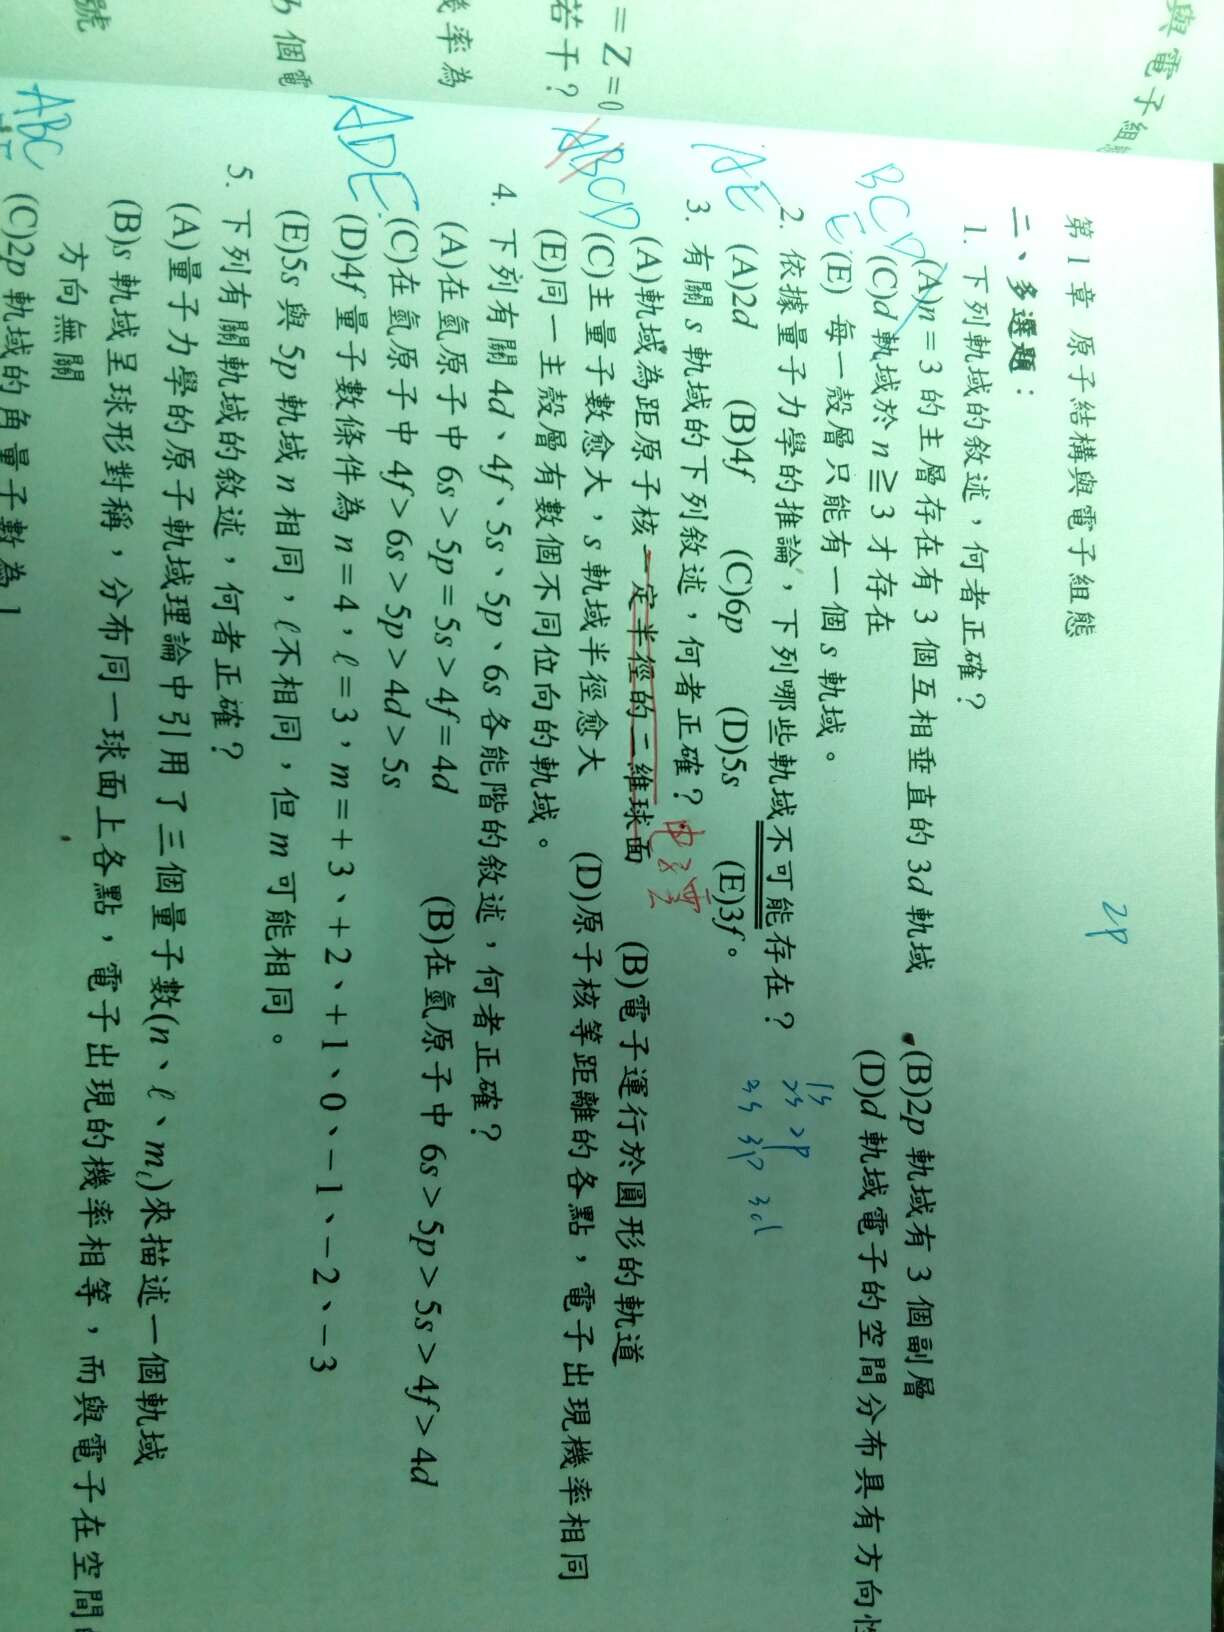 與電子組
= Z = 0
若干？
率為
個電
號
第1章 原子結構與電子組態
2p
二、多選題：
BCD
E
1. 下列軌域的敘述，何者正確？
(A)n＝3 的主層存在有 3 個互相垂直的 3d 軌域 (B)2p 軌域有 3 個副層
(C)d 軌域於 n≧3 才存在 (D)d 軌域電子的空間分布具有方向性
(E) 每一殼層只能有一個 s 軌域。
AE
2. 依據量子力學的推論，下列哪些軌域不可能存在？
(A)2d (B)4f (C)6p (D)5s (E)3f。
1s
2s 2p
3s 3p 3d
ABCD
3. 有關 s 軌域的下列敘述，何者正確？
电子雲
(A)軌域為距原子核一定半徑的二維球面 (B)電子運行於圓形的軌道
(C)主量子數愈大，s 軌域半徑愈大 (D)原子核等距離的各點，電子出現機率相同
(E)同一主殼層有數個不同位向的軌域。
ADE
4. 下列有關 4d、4f、5s、5p、6s 各能階的敘述，何者正確？
(A)在氫原子中 6s＞5p＝5s＞4f＝4d (B)在氫原子中 6s＞5p＞5s＞4f＞4d
(C)在氫原子中 4f＞6s＞5p＞4d＞5s
(D)4f 量子數條件為 n＝4，ℓ＝3，m＝＋3、＋2、＋1、0、－1、－2、－3
(E)5s 與 5p 軌域 n 相同，ℓ不相同，但 m 可能相同。
ABC
5. 下列有關軌域的敘述，何者正確？
(A)量子力學的原子軌域理論中引用了三個量子數(n、ℓ、mℓ)來描述一個軌域
(B)s 軌域呈球形對稱，分布同一球面上各點，電子出現的機率相等，而與電子在空間
方向無關
(C)2p 軌域的角量子數為 1